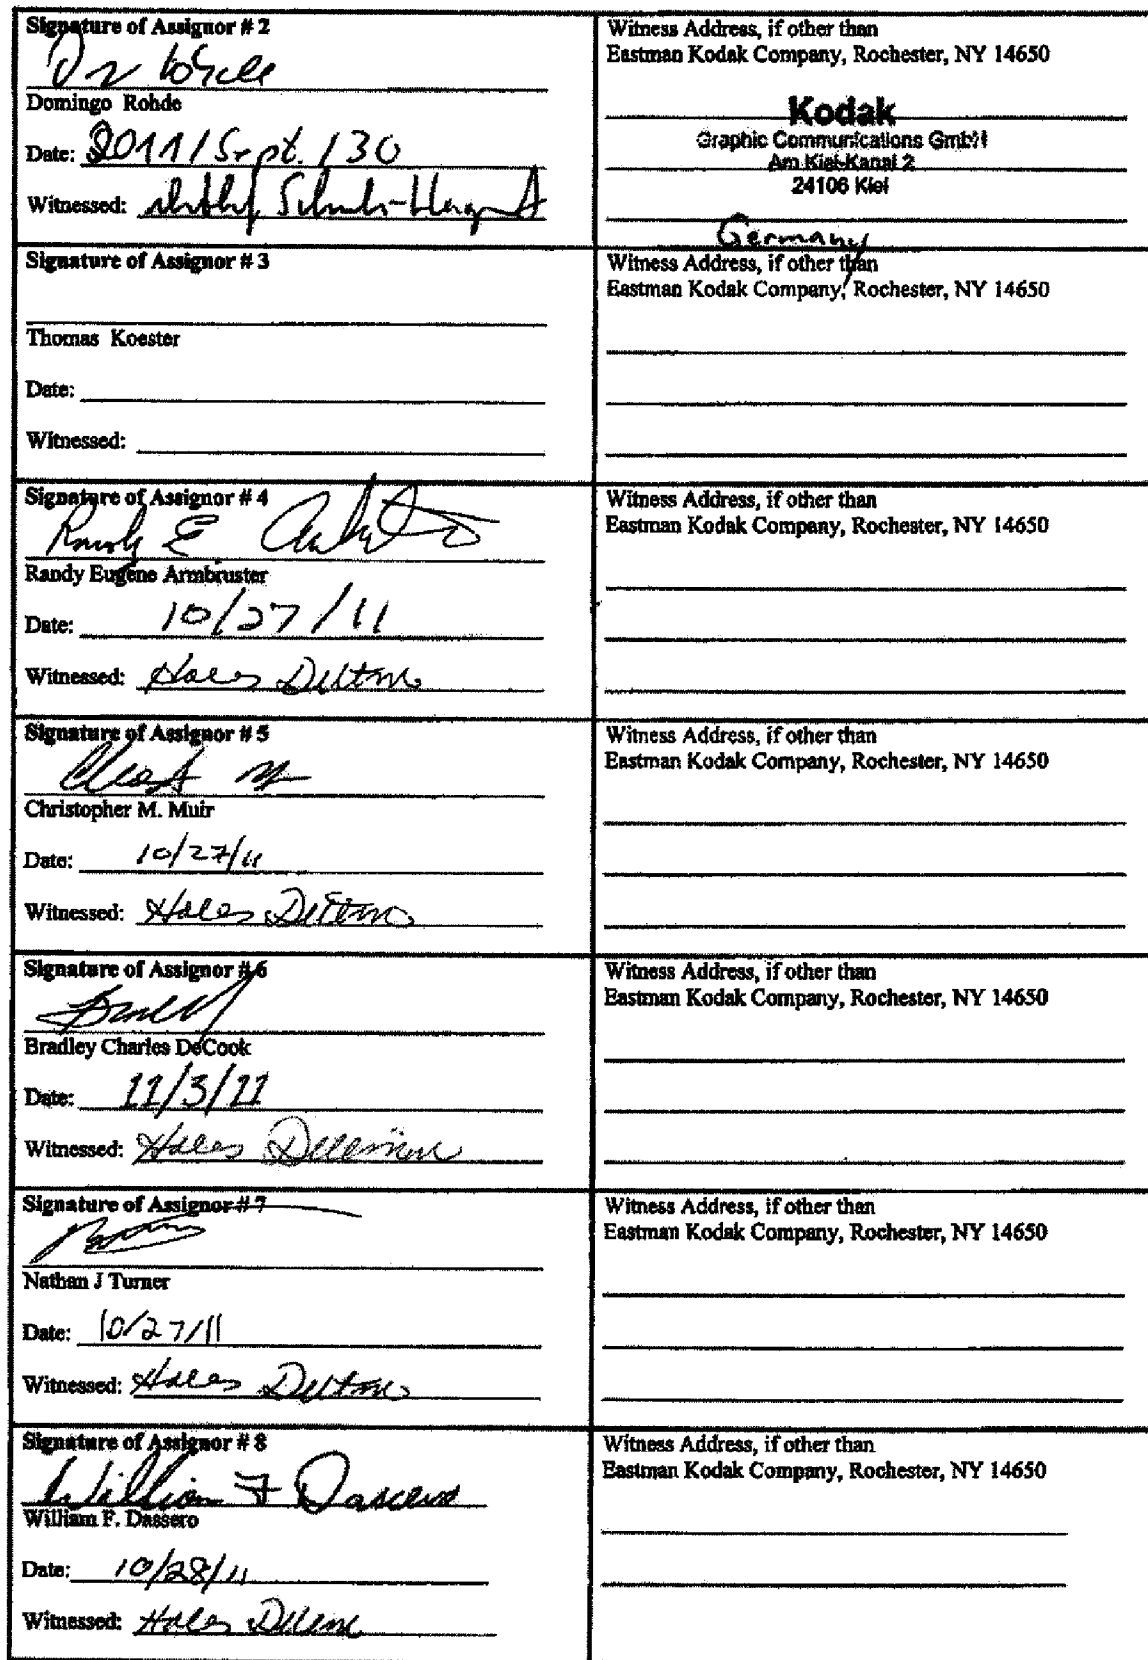 Signature of Assignor # 2
Domingo Rohde
Date: 2011/Sept./30
Witnessed:
Witness Address, if other than
Eastman Kodak Company, Rochester, NY 14650
Kodak
Graphic Communications GmbH
Am Kiel-Kanal 2
24106 Kiel
Germany
Signature of Assignor # 3
Thomas Koester
Date:
Witnessed:
Witness Address, if other than
Eastman Kodak Company, Rochester, NY 14650
Signature of Assignor # 4
Randy E
Randy Eugene Armbruster
Date: 10/27/11
Witnessed:
Witness Address, if other than
Eastman Kodak Company, Rochester, NY 14650
Signature of Assignor # 5
Christopher M. Muir
Date: 10/27/11
Witnessed:
Witness Address, if other than
Eastman Kodak Company, Rochester, NY 14650
Signature of Assignor # 6
Bradley Charles DeCook
Date: 11/3/11
Witnessed:
Witness Address, if other than
Eastman Kodak Company, Rochester, NY 14650
Signature of Assignor # 7
Nathan J Turner
Date: 10/27/11
Witnessed:
Witness Address, if other than
Eastman Kodak Company, Rochester, NY 14650
Signature of Assignor # 8
William F Dassero
William F. Dassero
Date: 10/28/11
Witnessed:
Witness Address, if other than
Eastman Kodak Company, Rochester, NY 14650